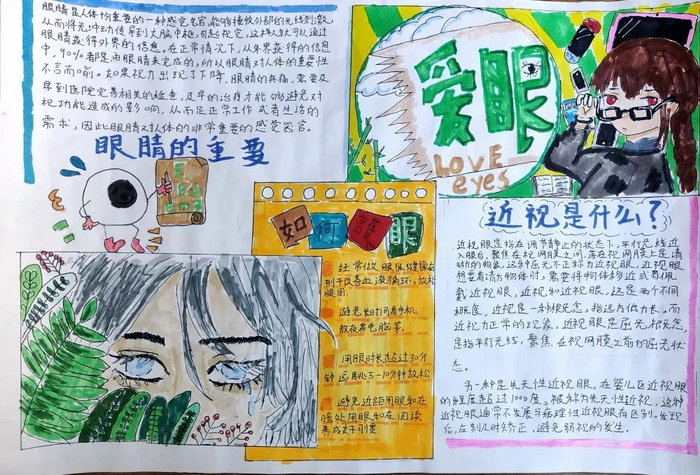 眼睛是人体十分重要的一种感觉器官,能够接收外部的光线刺激,
从而将光冲动传导到大脑中枢,引起视觉,这样人就可以通过
眼睛获得外界的信息。在正常情况下,从外界获得的信息
中,90%都是由眼睛来完成的,所以眼睛对人体的重要性
不言而喻。如果视力出现了下降、眼睛的疼痛,需要及
早到医院完善相关的检查,及早的治疗才能够避免对
视功能造成的影响,从而足正常工作或者生活的
需求,因此眼睛对人体的非常重要的感觉器官。
眼睛的重要
爱眼
LOVE
eyes
如何護眼
经常做眼保健操有
利于改善血液循环,放松
眼周
避免长时间看手机,
熬夜看电脑等。
用眼时长超过30分
钟远眺5-10分钟放松
避免近距用眼和在
暗处用眼和在阅读
养成好习惯
近视是什么?
近视眼是指在调节静止的状态下,平行光线进
入眼后,聚焦在视网膜之间,落在视网膜上是清
晰的物象,这种屈光不正称为近视眼,近视眼
想要看清方物体时,需要将物体移近或者佩
戴近视眼,近视和近视眼,这是两个不同
概念,近视是一种概念,指远方低力长。而
近视力正常的现象,近视眼是屈光概念态,
是指平行光线,聚焦在视网膜之前的屈光状
态。
另一种是先天性近视眼,在婴儿区近视眼
的程度超过1000度,被称为先天性近视,这种
近视眼通常不发展与病理性近视眼有区别。发现
后,应到及时矫正,避免弱视的发生。